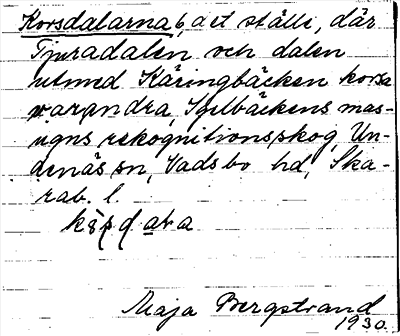 Korsdalarna, det ställe, där
Tjuradalen och dalen
utmed Käringbäcken korsa
varandra, Igelbäckens mas-
ugns rekognitionsskog, Un-
denäs sn, Vadsbo hd, Ska-
rab. l.
Maja Bergstrand
1930.